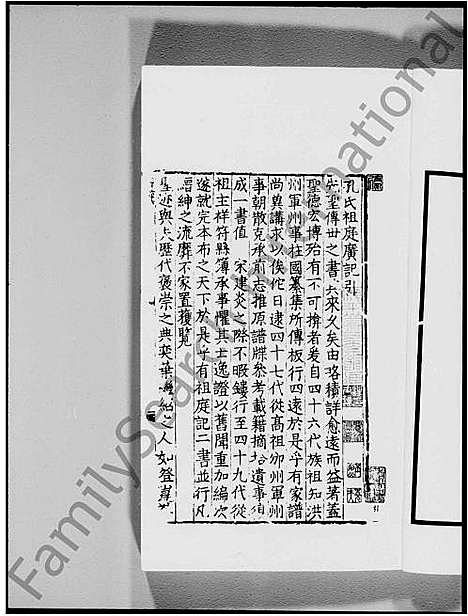 孔氏祖庭廣記引
先聖傳世之書其來久矣由略積詳愈遠而益著蓋
聖德宏博殆有不可揜者爰自四十六代族祖知洪
州軍州事柱國纂集所傳板行四遠於是乎有家譜
尚冀講求以俟佗日逮四十七代從高祖邠州軍州
事朝散克承前志推原譜牒參考載籍摘拾遺事
成一書值 宋建炎之際不暇鏤行至四十九代從
祖主祥符縣簿承事懼其亡逸證以舊聞重加編次
遂就完本布之天下於是乎有祖庭記二書並行凡
縉紳之流靡不家置獲覽
聖迹與夫歷代褒崇之典奕葉 人如登
FamilySearch International